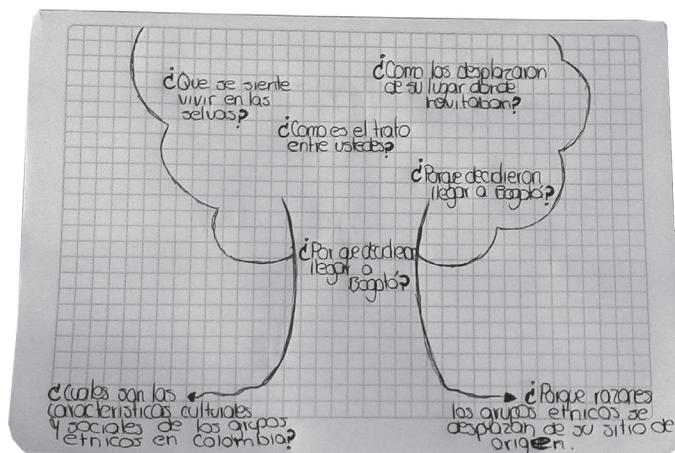 ¿Que se siente
vivir en las
selvas?
¿Como los desplazaron
de su lugar donde
havitaban?
¿Como es el trato
entre ustedes?
¿Porqe decidieron
llegar a Bogotá?
¿Por qe decidieron
llegar a
Bogotá?
¿Cuales son las
caracteristicas culturales
y sociales de los grupos
etnicos en colombia?
¿Porque razones
los grupos etnicos se
desplazan de su sitio de
origen.